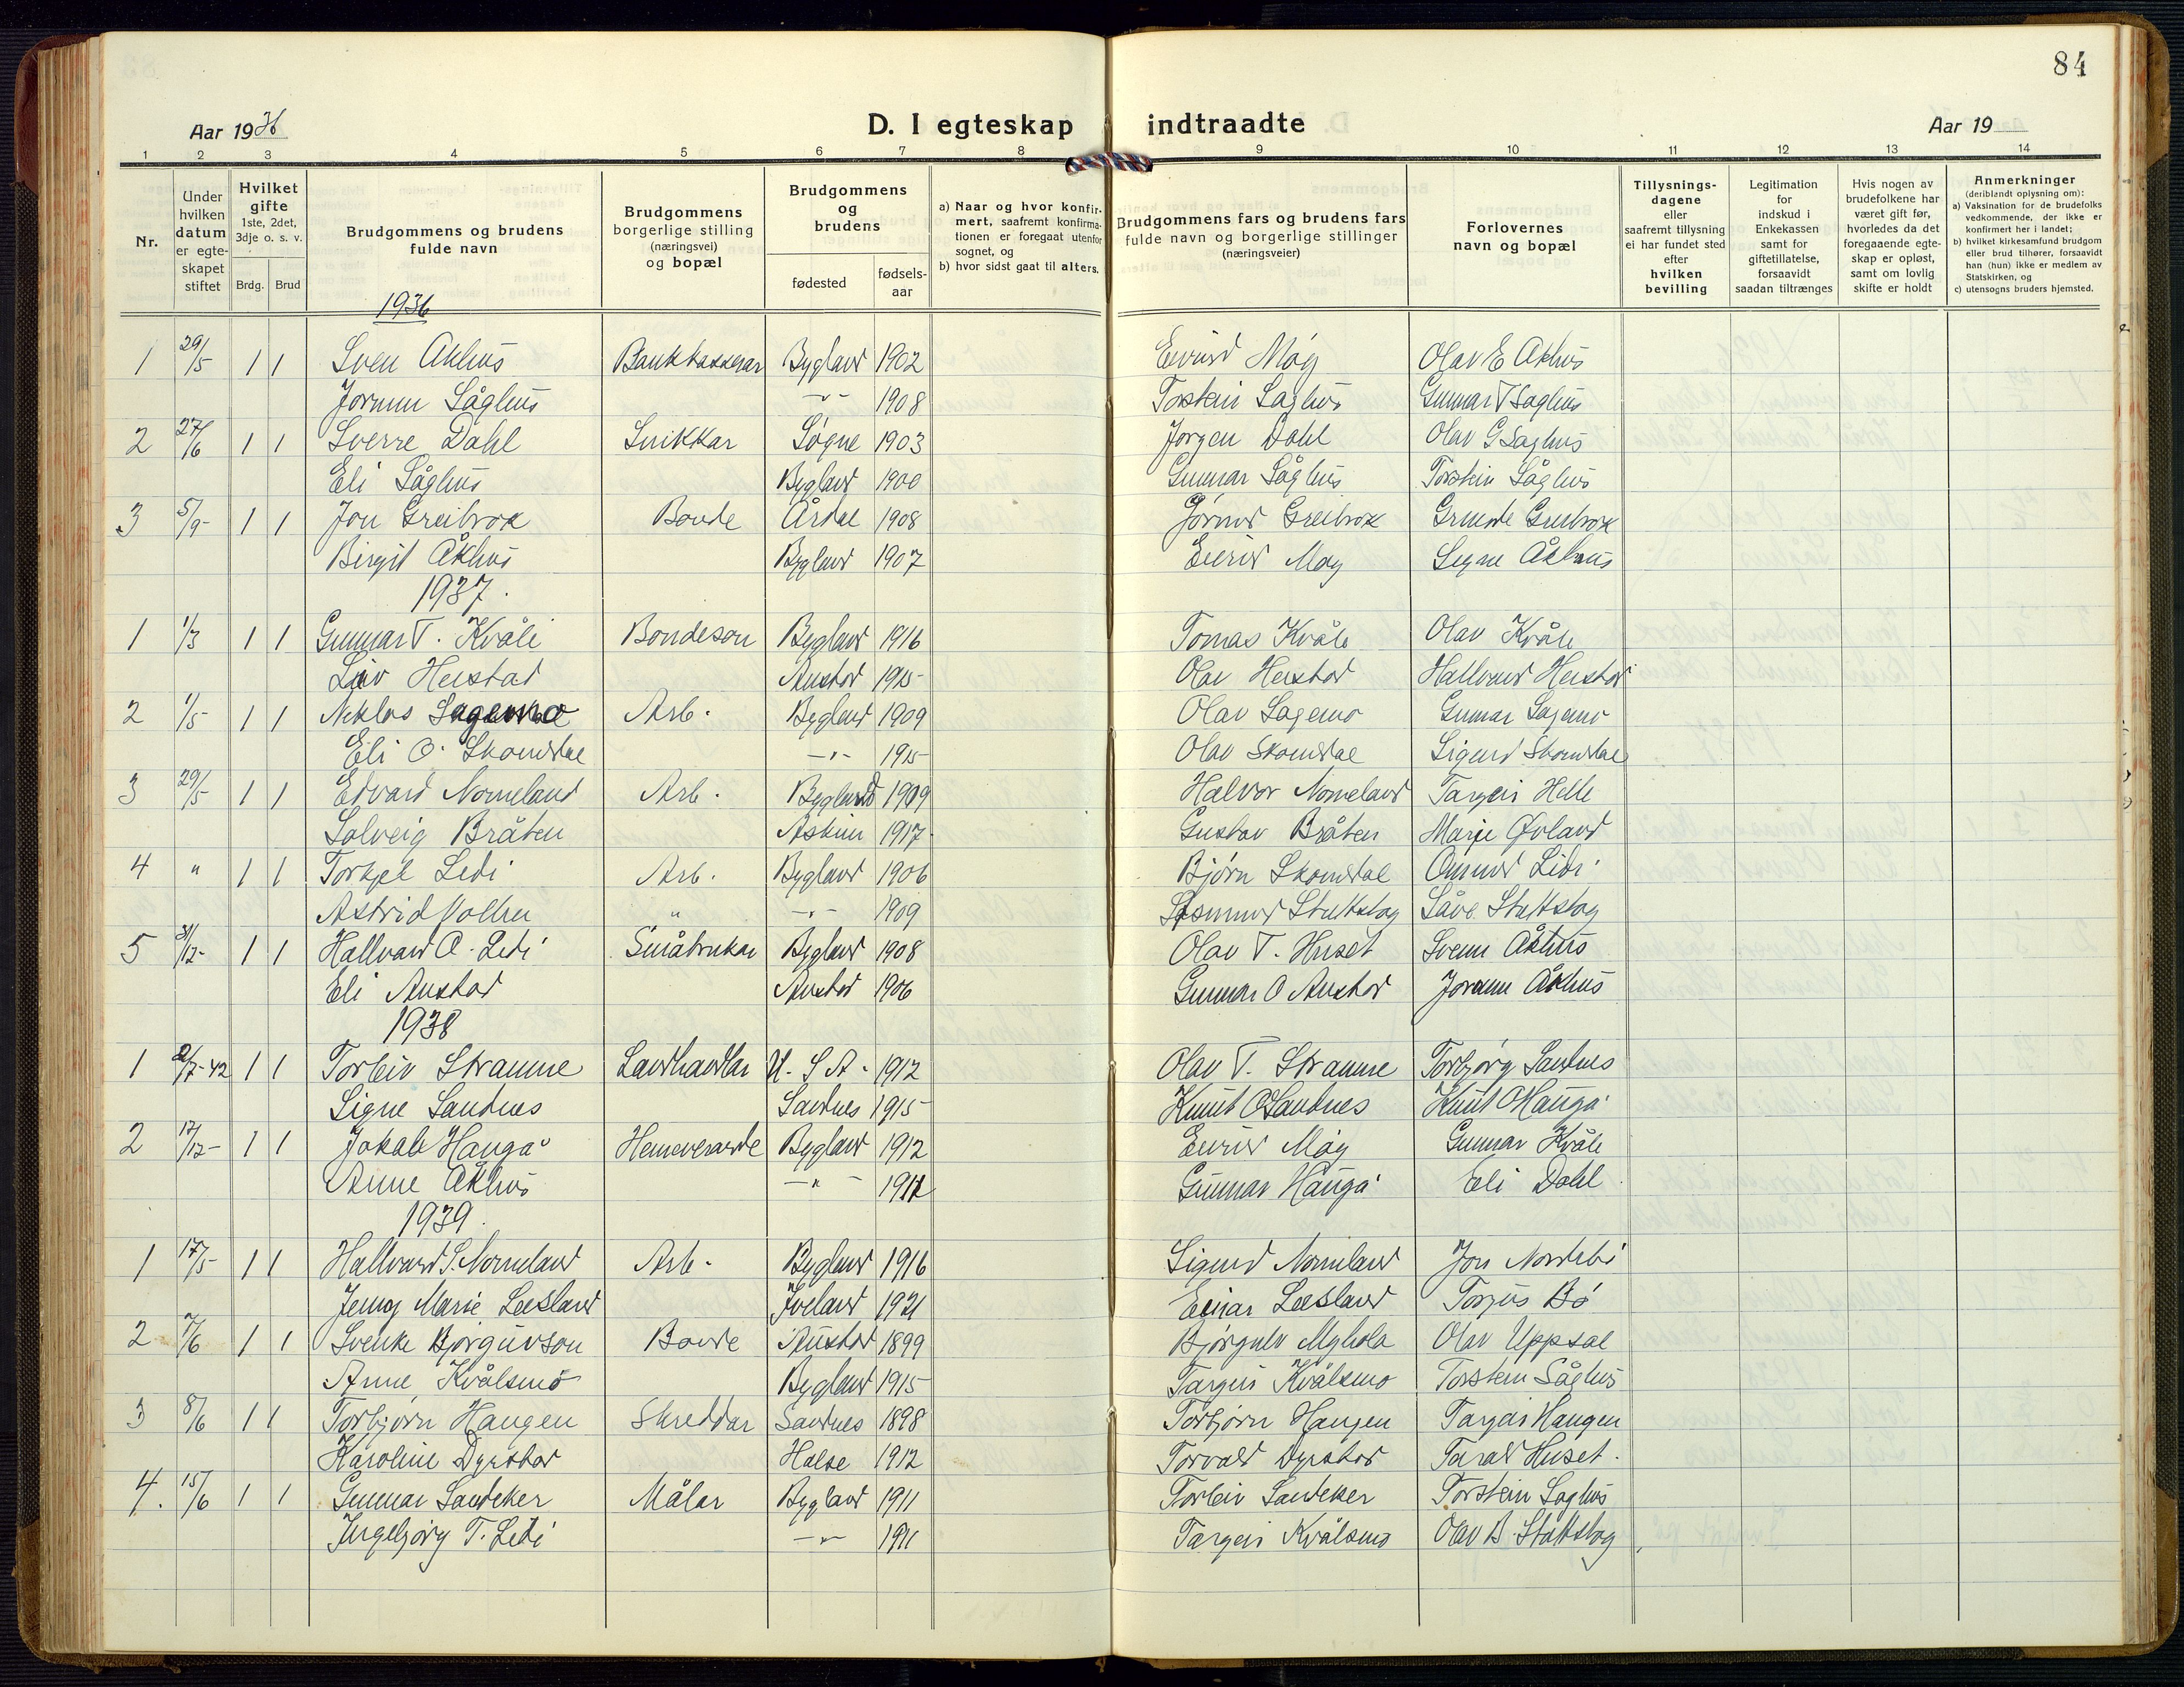 84
Aar 1936 D. I egteskap indtraadte Aar 19
1 2 3 4 5 6 7 8 9 10 11 12 13 14
Nr.
Under hvilken datum er egteskapet stiftet
Hvilket gifte 1ste, 2det, 3dje o. s. v. Brdg. Brud
Brudgommens og brudens fulde navn
Brudgommens borgerlige stilling (næringsvei) og bopæl
Brudgommens og brudens fødested fødsels-aar
a) Naar og hvor konfirmert, saafremt konfirmationen er foregaat utenfor sognet, og
b) hvor sidst gaat til alters.
Brudgommens fars og brudens fars fulde navn og borgerlige stillinger (næringsveier)
Forlovernes navn og bopæl
Tillysnings-dagene eller saafremt tillysning ei har fundet sted efter hvilken bevilling
Legitimation for indskud i Enkekassen samt for giftetillatelse, forsaavidt saadan tiltrænges
Hvis nogen av brudefolkene har været gift før, hvorledes da det foregaaende egteskap er opløst, samt om lovlig skifte er holdt
Anmerkninger (deriblandt oplysning om):
a) Vaksination for de brudefolks vedkommende, der ikke er konfirmert her i landet;
b) hvilket kirkesamfund brudgom eller brud tilhører, forsaavidt han (hun) ikke er medlem av Statskirken, og
c) utensogns bruders hjemsted.
1936
1 29/5 1 1 Sven Åkhus Bankkasserar Bygland 1902 Eivind Møy Olav E Åkhus
Jorunn Såghus -"- 1908 Torstein Saghus Gunnar T Saghus
2 27/6 1 1 Sverre Dahl Snikkar Søgne 1903 Jørgen Dahl Olav G Saghus
Eli Såghus Bygland 1900 Gunnar Såghus Torstein Såghus
3 5/9- 1 1 Jon Greibrok Bonde Årdal 1908 Greibrok Greibrok
Birgit Åkhus Bygland 1907 Eivind Møy Signe Åkhus
1937.
1 1/3 1 1 Gunnar T. Kvåle Bondeson Bygland 1916 Tomas Kvåle Olav Kvåle
Liv Herstad Austad 1915 Olav Herstad Hallvard Herstad
2 1/5 1 1 Niklos Sagemo Arb. Bygland 1909 Olav Sagemo Gunnar Sagemo
Eli O. Skomedal -"- 1915 Olav Skomedal Sigurd Skomedal
3 29/5 1 1 Edvard Nomeland Arb. Bygland 1909 Halvor Nomeland Targei Helle
Solveig Bråten Askim 1917 Gustav Bråten Marie Øvland
4 " 1 1 Torkjel Lidi Arb. Bygland 1906 Bjørn Skomedal Ånund Lidi
Astrid " -"- 1909 Stuttslog Såve Stuttslog
5 31/12- 1 1 Hallvard O. Lidi Småbrukar Bygland 1908 Olav T. Huset Svenn Åkhus
Eli Austad Austad 1906 Gunnar O Austad Jorunn Åkhus
1938
1 2/7-42 1 1 Torleiv Straume Landhandlar U.S.A. 1912 Olav T. Straume Torbjørg Sandnes
Signe Sandnes Sandnes 1915 Knut O Sandnes Knut O Haugå
2 17/12- 1 1 Jakob Haugå Heimeverande Bygland 1912 Eivind Møy Gunnar Kvåle
Anne Åkhus -"- 1912 Gunnar Haugå Eli Dahl
1939.
1 17/5- 1 1 Hallvard S. Nomeland Arb. Bygland 1916 Sigurd Nomeland Jon Nordebø
Jenny Marie Løsland Iveland 1921 Einar Løsland Torjus Bø
2 7/6 1 1 Svenke Bjørgulvson Bonde Austad 1899 Bjørgulv Myhola Olav Uppsal
Anne Kvålsmo Bygland 1915 Targei Kvålsmo Torstein Såghus
3 8/6 1 1 Torbjørn Haugen Skreddar Sandnes 1898 Torbjørn Haugen Targei Haugen
Karoline Dyrstad Halse 1912 Torvald Dyrstad Tarald Huset.
4. 15/6 1 1 Gunnar Sandeker Målar Bygland 1911 Torleiv Sandeker Torstein Saghus
Ingebjørg T. Lidi -"- 1911 Targei Kvålsmo Olav B. Stuttslog